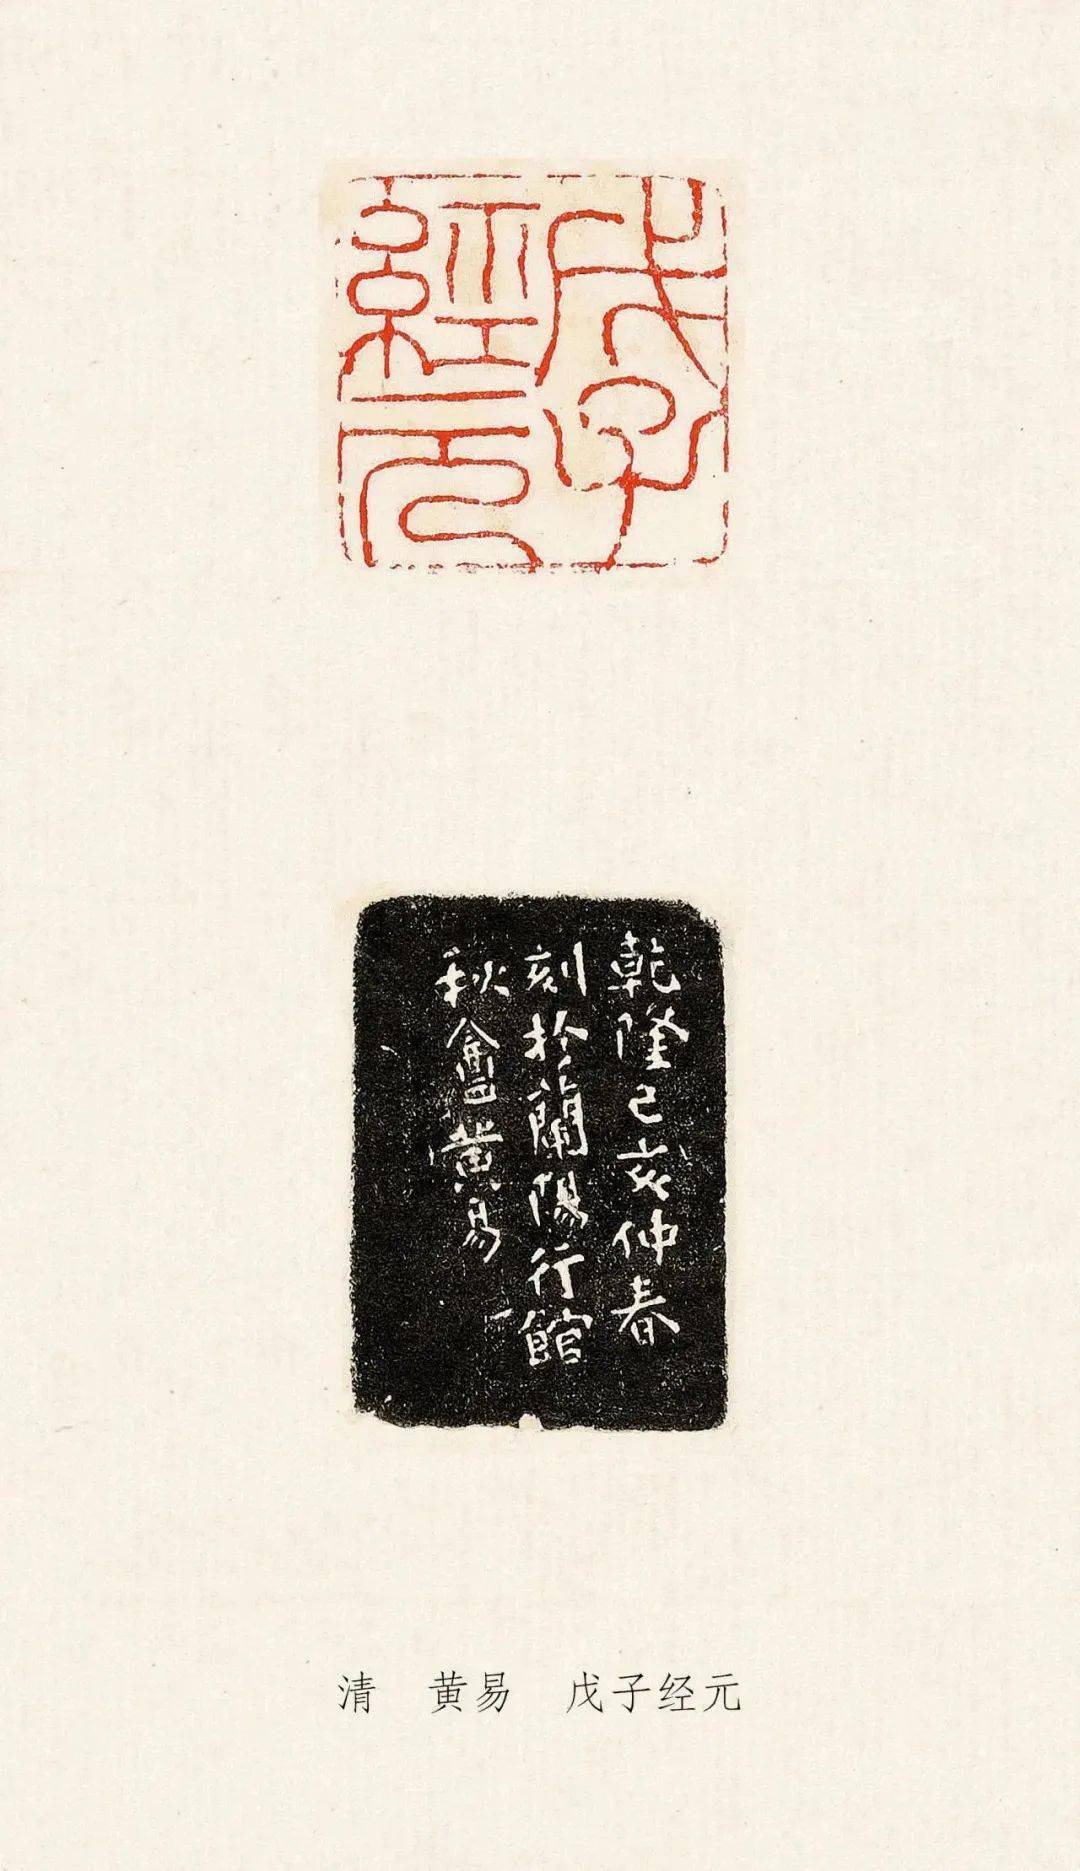 戊子
經元
乾隆己亥仲春
刻於蘭陽行館
秋盦黄易
清 黄易 戊子经元